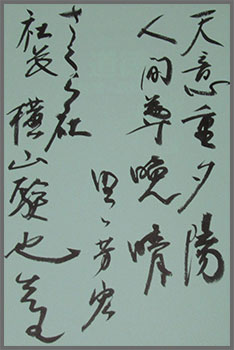 天意重夕陽
人間尊晩晴
芳宏
さくら社
社長 横山験也